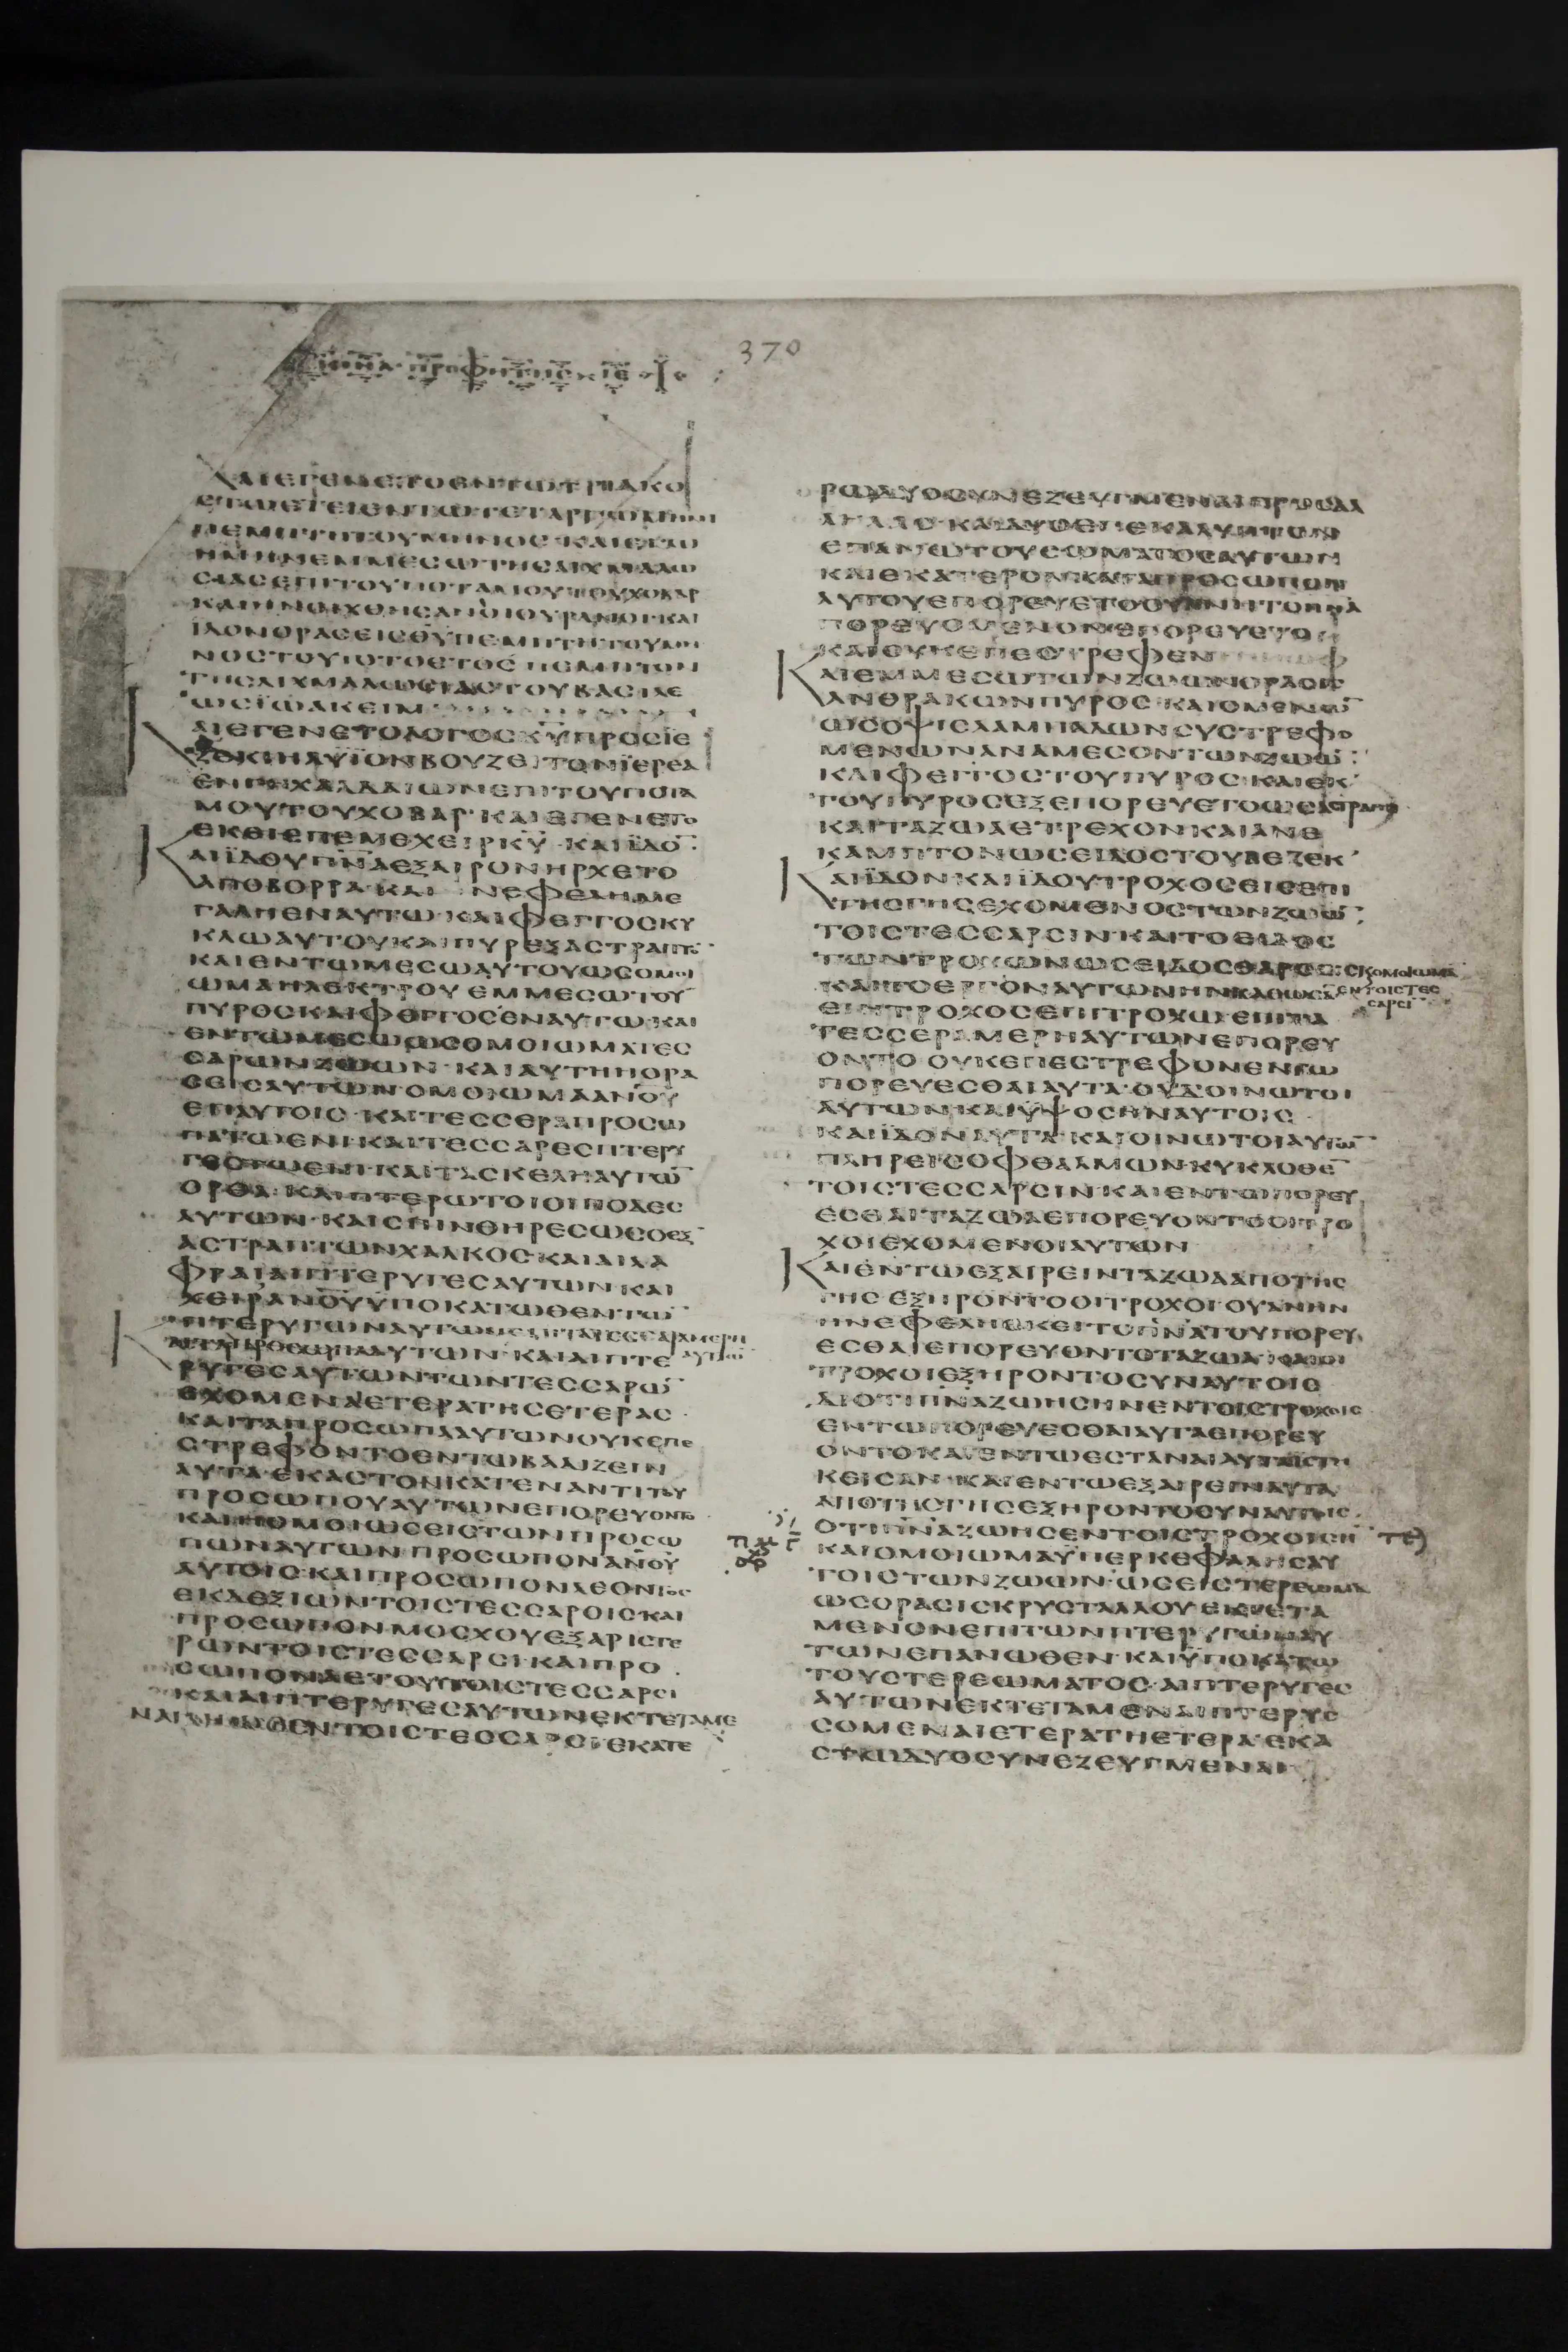 370
ΚΑΙΕΓΕΝΕΤΟΕΝΤΩΤΡΙΑΚΟ
ΠΕΜΠΤΗΤΟΥΜΗΝΟΣ ΚΑΙΕΓΩ
ΗΜΗΝΕΜΜΕΣΩΤΗΣΑΙΧΜΑΛΩ
ΣΙΑΣΕΠΙΤΟΥΠΟΤΑΜΟΥΤΟΥΧΟΒΑΡ
ΚΑΙΗΝΟΙΧΘΗΣΑΝΟΙΟΥΡΑΝΟΙ·ΚΑΙ
ΙΔΟΝΟΡΑΣΕΙΣΘΥ ΠΕΜΠΤΗΤΟΥΜΗ
ΝΟΣΤΟΥΤΟΤΟΕΤΟΣ ΠΕΜΠΤΟΝ
ΤΗΣΑΙΧΜΑΛΩΣΙΑΣΤΟΥΒΑΣΙΛΕ
ΩΣΪΩΑΚΕΙΜ
ΚΑΙΕΓΕΝΕΤΟΛΟΓΟΣΚΥΠΡΟΣΙΕ
ΖΕΚΙΗΛΥΪΟΝΒΟΥΖΕΙΤΟΝΪΕΡΕΑ
ΕΝΓΗΧΑΛΔΑΙΩΝΕΠΙΤΟΥΠΟΤΑ
ΜΟΥΤΟΥΧΟΒΑΡ·ΚΑΙΕΓΕΝΕΤΟ
ΕΚΕΙΕΠΕΜΕΧΕΙΡΚΥ·ΚΑΙΪΔΟ
ΚΑΙΪΔΟΥΠΝΑΕΞΑΙΡΟΝΗΡΧΕΤΟ
ΑΠΟΒΟΡΡΑ·ΚΑΙ ΝΕΦΕΛΗΜΕ
ΓΑΛΗΕΝΑΥΤΩ·ΚΑΙΦΕΓΓΟΣΚΥ
ΚΛΩΑΥΤΟΥΚΑΙΠΥΡΕΞΑΣΤΡΑΠΤ
ΚΑΙΕΝΤΩΜΕΣΩΑΥΤΟΥΩΣΟΜΟΙ
ΩΜΑΗΛΕΚΤΡΟΥ ΕΜΜΕΣΩΤΟΥ
ΠΥΡΟΣΚΑΙΦΕΓΓΟΣΕΝΑΥΤΩ·ΚΑΙ
ΕΝΤΩΜΕΣΩΩΣΟΜΟΙΩΜΑΤΕΣ
ΣΑΡΩΝΖΩΩΝ·ΚΑΙΑΥΤΗΗΟΡΑ
ΣΕΙΣΑΥΤΩΝΟΜΟΙΩΜΑΑΝΟΥ
ΕΠΑΥΤΟΙΣ·ΚΑΙΤΕΣΣΕΡΑΠΡΟΣΩ
ΠΑΤΩΕΝΙ·ΚΑΙΤΕΣΣΑΡΕΣΠΤΕΡΥ
ΓΕΣΤΩΕΝΙ·ΚΑΙΤΑΣΚΕΛΗΑΥΤΩ
ΟΡΘΑ·ΚΑΙΠΤΕΡΩΤΟΙΟΙΠΟΔΕΣ
ΑΥΤΩΝ·ΚΑΙΣΠΙΝΘΗΡΕΣΩΣΟΕΞ
ΑΣΤΡΑΠΤΩΝΧΑΛΚΟΣ·ΚΑΙΕΛΑ
ΦΡΑΙΑΙΠΤΕΡΥΓΕΣΑΥΤΩΝ·ΚΑΙ
ΧΕΙΡΑΝΟΥΫΠΟΚΑΤΩΘΕΝΤΩ
ΡΥΓΕΣΑΥΤΩΝΤΩΝΤΕΣΣΑΡΩ
ΕΧΟΜΕΝΑΕΤΕΡΑΤΗΣΕΤΕΡΑΣ
ΚΑΙΤΑΠΡΟΣΩΠΑΑΥΤΩΝΟΥΚΕΠΕ
ΣΤΡΕΦΟΝΤΟΕΝΤΩΒΑΔΙΖΕΙΝ
ΑΥΤΑ·ΕΚΑΣΤΟΝΚΑΤΕΝΑΝΤΙΤΟΥ
ΠΡΟΣΩΠΟΥΑΥΤΩΝΕΠΟΡΕΥΟΝΤΟ
ΚΑΙΗΟΜΟΙΩΣΕΙΣΤΩΝΠΡΟΣΩ
ΠΩΝΑΥΤΩΝ·ΠΡΟΣΩΠΟΝΑΝΟΥ
ΑΥΤΟΙΣ·ΚΑΙΠΡΟΣΩΠΟΝΛΕΟΝΤΟΣ
ΕΚΔΕΞΙΩΝΤΟΙΣΤΕΣΣΑΡΟΙΣ·ΚΑΙ
ΠΡΟΣΩΠΟΝΜΟΣΧΟΥΕΞΑΡΙΣΤΕ
ΡΩΝΤΟΙΣΤΕΣΣΑΡΣΙ·ΚΑΙΠΡΟ
ΣΩΠΟΝΑΕΤΟΥΤΟΙΣΤΕΣΣΑΡΣΙ
ΚΑΙΑΙΠΤΕΡΥΓΕΣΑΥΤΩΝΕΚΤΕΤΑΜΕ
ΝΑΙΑΝΩΘΕΝΤΟΙΣΤΕΣΣΑΡΣΙ·ΕΚΑΤΕ
ΕΠΑΝΩΤΟΥΣΩΜΑΤΟΣΑΥΤΩΝ
ΚΑΙΕΚΑΤΕΡΟΝΚΑΤΑΠΡΟΣΩΠΟΝ
ΚΑΙΟΥΚΕΠΕΣΤΡΕΦΕΝ
ΚΑΙΕΜΜΕΣΩΤΩΝΖΩΩΝΟΡΑΣΙΣ
ΑΝΘΡΑΚΩΝΠΥΡΟΣ·ΚΑΙΟΜΕΝΩ
ΩΣΟΨΙΣΛΑΜΠΑΔΩΝΣΥΣΤΡΕΦΟ
ΜΕΝΩΝΑΝΑΜΕΣΟΝΤΩΝΖΩΩ
ΚΑΙΦΕΓΓΟΣΤΟΥΠΥΡΟΣ·ΚΑΙΕΚ
ΤΟΥΠΥΡΟΣΕΞΕΠΟΡΕΥΕΤΟΩΣΑΣΤΡΑΠΗ
ΚΑΙΤΑΖΩΑΕΤΡΕΧΟΝΚΑΙΑΝΕ
ΚΑΜΠΤΟΝΩΣΕΙΔΟΣΤΟΥΒΕΖΕΚ
ΚΑΙΪΔΟΝΚΑΙΪΔΟΥΤΡΟΧΟΣΕΙΣΕΠΙ
ΤΗΣΓΗΣΕΧΟΜΕΝΟΣΤΩΝΖΩΩ
ΤΟΙΣΤΕΣΣΑΡΣΙΝ·ΚΑΙΤΟΕΙΔΟΣ
ΤΩΝΤΡΟΧΩΝΩΣΕΙΔΟΣΘΑΡΣΕΙΣ
ΕΙΗΤΡΟΧΟΣΕΠΙΤΡΟΧΩ·ΕΠΙΤΑ
ΤΕΣΣΕΡΑΜΕΡΗΑΥΤΩΝΕΠΟΡΕΥ
ΟΝΤΟ·ΟΥΚΕΠΕΣΤΡΕΦΟΝΕΝΤΩ
ΠΟΡΕΥΕΣΘΑΙΑΥΤΑ·ΟΥΔΟΙΝΩΤΟΙ
ΑΥΤΩΝ·ΚΑΙΫΨΟΣΗΝΑΥΤΟΙΣ
ΚΑΙΪΔΟΝΑΥΤΑ·ΚΑΙΟΙΝΩΤΟΙΑΥΤΩ
ΠΛΗΡΕΙΣΟΦΘΑΛΜΩΝ·ΚΥΚΛΟΘΕ
ΤΟΙΣΤΕΣΣΑΡΣΙΝ·ΚΑΙΕΝΤΩΠΟΡΕΥ
ΕΣΘΑΙΤΑΖΩΑΕΠΟΡΕΥΟΝΤΟΟΙΤΡΟ
ΧΟΙΕΧΟΜΕΝΟΙΑΥΤΩΝ
ΚΑΙΕΝΤΩΕΞΑΙΡΕΙΝΤΑΖΩΑΑΠΟΤΗΣ
ΓΗΣ·ΕΞΗΡΟΝΤΟΟΙΤΡΟΧΟΙ·ΟΥΑΝΗΝ
ΕΣΘΑΙΕΠΟΡΕΥΟΝΤΟΤΑΖΩΑ·ΚΑΙΟΙ
ΤΡΟΧΟΙΕΞΗΡΟΝΤΟΣΥΝΑΥΤΟΙΣ
ΔΙΟΤΙΠΝΑΖΩΗΣΗΝΕΝΤΟΙΣΤΡΟΧΟΙΣ
ΕΝΤΩΠΟΡΕΥΕΣΘΑΙΑΥΤΑΕΠΟΡΕΥ
ΟΝΤΟ·ΚΑΙΕΝΤΩΕΣΤΑΝΑΙΑΥΤΑΙΣΤΗ
ΚΕΙΣΑΝ·ΚΑΙΕΝΤΩΕΞΑΙΡΕΙΝΑΥΤΑ
ΑΠΟΤΗΣΓΗΣΕΞΗΡΟΝΤΟΣΥΝΑΥΤΟΙΣ
ΟΤΙΠΝΑΖΩΗΣΕΝΤΟΙΣΤΡΟΧΟΙΣΗ
ΚΑΙΟΜΟΙΩΜΑΫΠΕΡΚΕΦΑΛΗΣΑΥ
ΤΟΙΣΤΩΝΖΩΩΝ·ΩΣΕΙΣΤΕΡΕΩΜΑ
ΩΣΟΡΑΣΙΣΚΡΥΣΤΑΛΛΟΥ·ΕΚΤΕΤΑ
ΜΕΝΟΝΕΠΙΤΩΝΠΤΕΡΥΓΩΝΑΥ
ΤΩΝΕΠΑΝΩΘΕΝ·ΚΑΙΫΠΟΚΑΤΩ
ΤΟΥΣΤΕΡΕΩΜΑΤΟΣ·ΑΙΠΤΕΡΥΓΕΣ
ΑΥΤΩΝΕΚΤΕΤΑΜΕΝΑΙΠΤΕΡΥΣ
ΣΟΜΕΝΑΙΕΤΕΡΑΤΗΕΤΕΡΑ·ΕΚΑ
ΣΤΩΔΥΟΣΥΝΕΖΕΥΓΜΕΝΑΙ